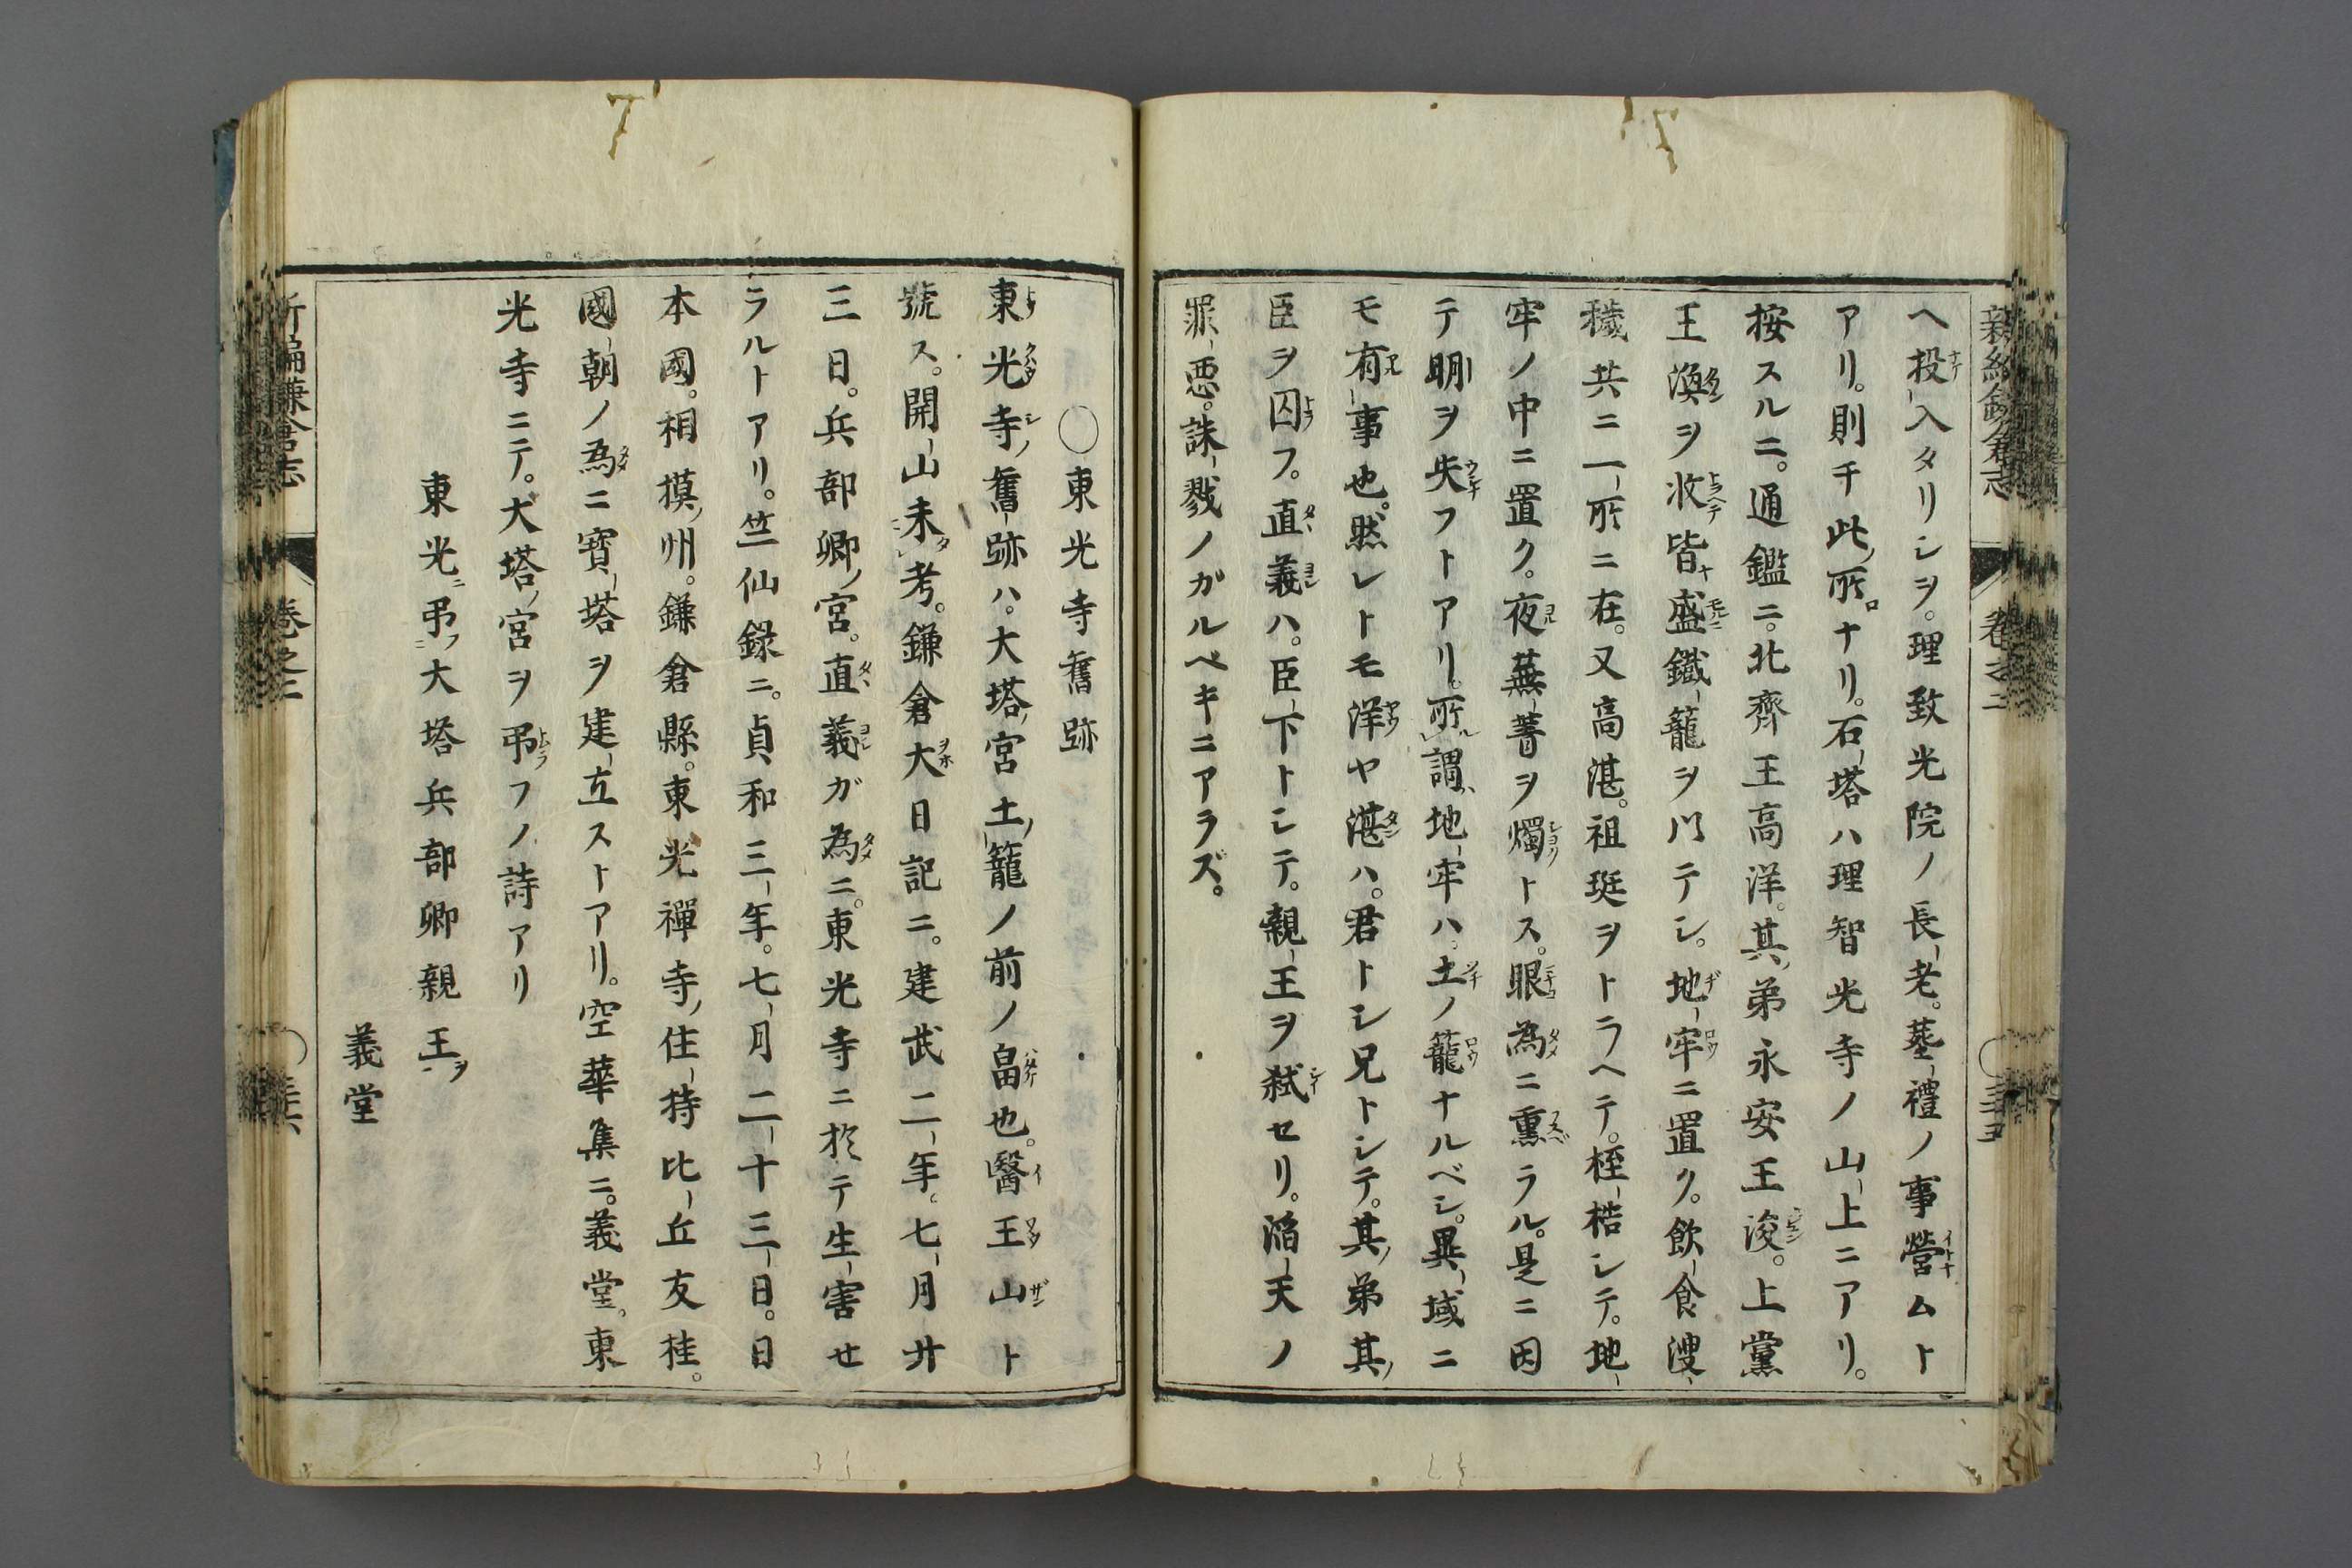 ヘ投入タリシヲ。理致光院ノ長老。墓禮ノ事營ムト
アリ。則チ此所ナリ。石塔ハ理智光寺ノ山上ニアリ。
按スルニ。通鑑ニ。北齊王高洋。其弟永安王浚。上黨
王渙ヲ收皆盛鐵籠ヲ以テシ。地牢ニ置ク。飲食溲
穢共ニ一所ニ在。又高湛。祖珽ヲトラヘテ。桎梏シテ。地
牢ノ中ニ置ク。夜蕪菁ヲ燭トス。眼為ニ熏ラル。是ニ因
テ明ヲ失フトアリ。所謂地牢ハ。土ノ籠ナルベシ。異域ニ
モ有事也。然レトモ洋ヤ湛ハ。君トシ兄トシテ。其弟其
臣ヲ囚フ。直義ハ。臣下トシテ。親王ヲ弑セリ。滔天ノ
罪惡。誅戮ノガルベキニアラズ。
〇東光寺舊跡
東光寺舊跡ハ。大塔宮土籠ノ前ノ畠也。醫王山ト
號ス。開山未考。鎌倉大日記ニ。建武二年。七月廿
三日。兵部卿宮。直義ガ為ニ。東光寺ニ於テ生害セ
ラルトアリ。竺仙錄ニ。貞和三年。七月二十三日。日
本國。相摸州。鎌倉縣。東光禪寺住持比丘友桂。
國朝ノ為ニ寶塔ヲ建立ストアリ。空華集ニ。義堂。東
光寺ニテ。大塔宮ヲ弔フノ詩アリ
東光弔大塔兵部卿親王
義堂
新編鎌倉志
卷之二